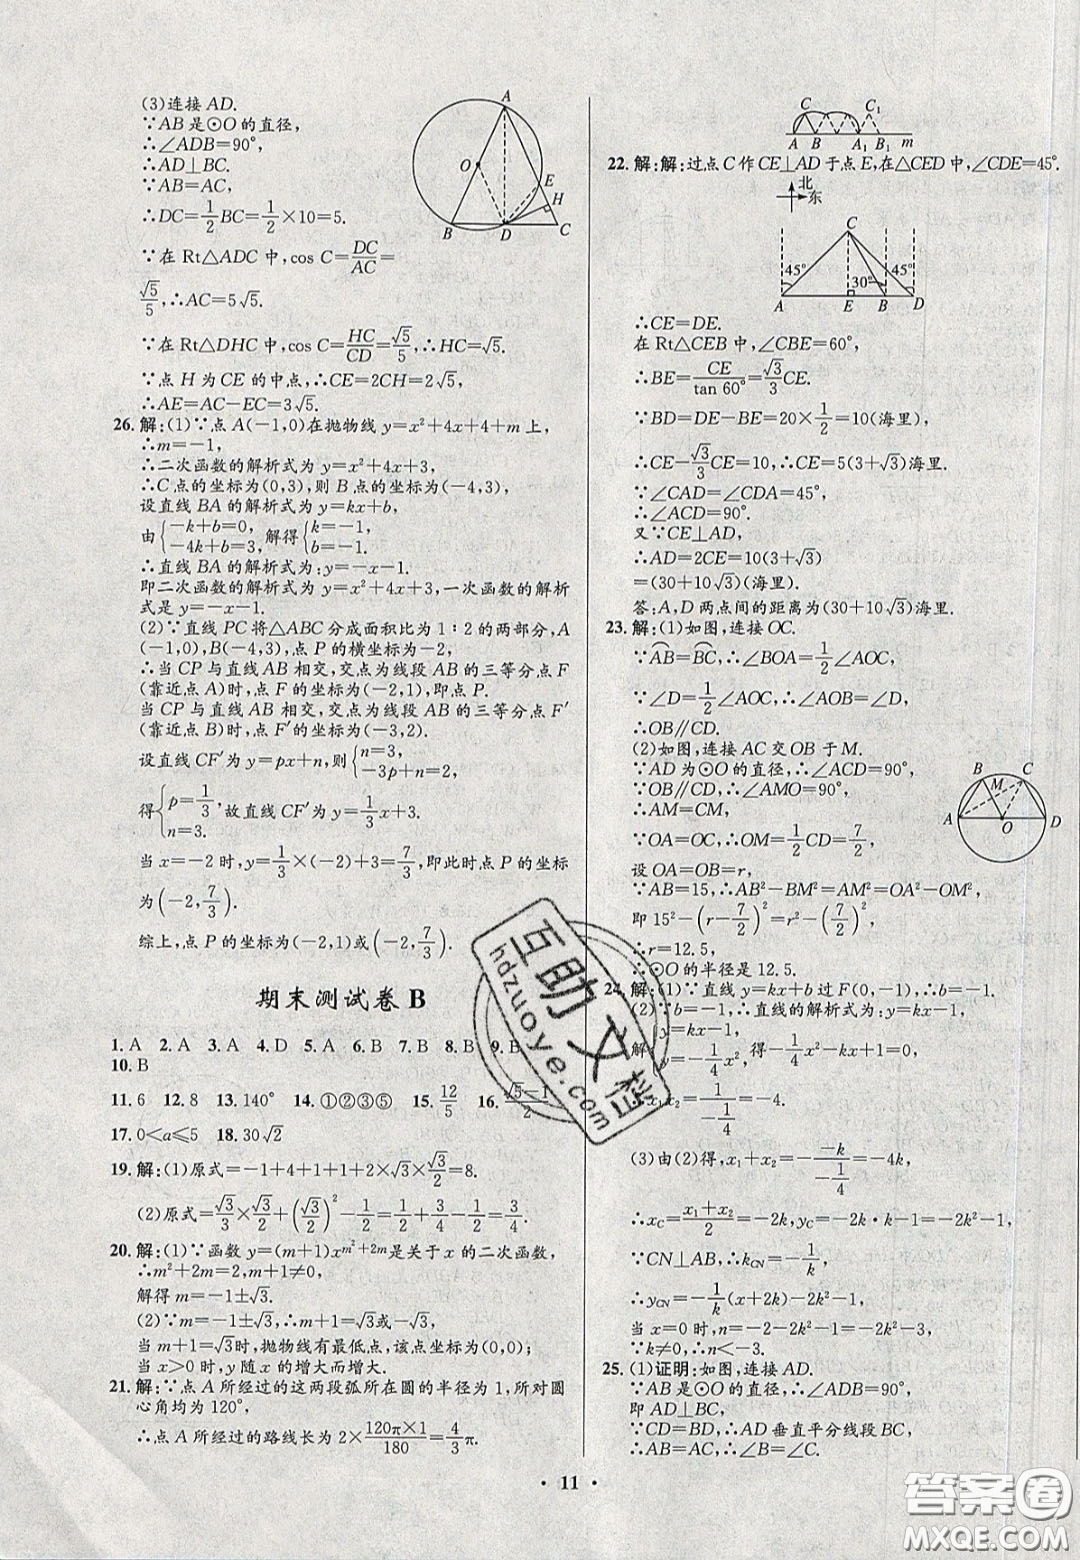 (3)连接 AD.
∵AB 是⊙O 的直径,
∴∠ADB=90°,
∴AD⊥BC.
∵AB=AC,
∴DC=1/2 BC=1/2×10=5.
∵在 Rt△ADC 中,cos C=DC/AC=
√5/5,∴AC=5√5.
∵在 Rt△DHC 中,cos C=HC/CD=√5/5,∴HC=√5.
∵点 H 为 CE 的中点,∴CE=2CH=2√5,
∴AE=AC-EC=3√5.
A
O
E
H
B
D
C
26. 解:(1)∵点 A(-1,0)在抛物线 y=x²+4x+4+m 上,
∴m=-1,
∴二次函数的解析式为 y=x²+4x+3,
∴C 点的坐标为(0,3),则 B 点的坐标为(-4,3),
设直线 BA 的解析式为 y=kx+b,
由{-k+b=0, -4k+b=3, 解得{k=-1, b=-1.
∴直线 BA 的解析式为:y=-x-1.
即二次函数的解析式为 y=x²+4x+3,一次函数的解析
式是 y=-x-1.
(2)∵直线 PC 将△ABC 分成面积比为 1∶2 的两部分,A
(-1,0),B(-4,3),点 P 的横坐标为-2,
∴当 CP 与直线 AB 相交,交点为线段 AB 的三等分点 F
(靠近点 A)时,点 F 的坐标为(-2,1),即点 P.
当 CP 与直线 AB 相交,交点为线段 AB 的三等分点 F′
(靠近点 B)时,点 F′的坐标为(-3,2).
设直线 CF′为 y=px+n,则{n=3, -3p+n=2,
得{p=1/3, n=3. 故直线 CF′为 y=1/3 x+3.
当 x=-2 时,y=1/3×(-2)+3=7/3,即此时点 P 的坐标
为(-2,7/3).
综上,点 P 的坐标为(-2,1)或(-2,7/3).
期末测试卷 B
1. A 2. A 3. A 4. D 5. A 6. B 7. B 8. B 9. B
10. B
11. 6 12. 8 13. 140° 14. ①②③⑤ 15. 12/5 16. (√5-1)/2
17. 0<a≤5 18. 30√2
19. 解:(1)原式=-1+4+1+1+2×√3×√3/2=8.
(2)原式=√3/3×√3/2+(√3/2)²-1/2=1/2+3/4-1/2=3/4.
20. 解:(1)∵函数 y=(m+1)x^(m²+2m)是关于 x 的二次函数,
∴m²+2m=2,m+1≠0,
解得 m=-1±√3.
(2)∵m=-1±√3,∴m+1=√3或-√3,
当 m+1=√3时,抛物线有最低点,该点坐标为(0,0);
当 x>0 时,y 随 x 的增大而增大.
21. 解:∵点 A 所经过的这两段弧所在圆的半径为 1,所对圆
心角均为 120°,
∴点 A 所经过的路线长为 2×(120π×1)/180=4/3 π.
C C₁
A B A₁ B₁ m
22. 解:解:过点 C 作 CE⊥AD 于点 E,在△CED 中,∠CDE=45°.
北
东
C
45° 30° 45°
A E B D
∴CE=DE.
在 Rt△CEB 中,∠CBE=60°,
∴BE=CE/tan 60°=√3/3 CE.
∵BD=DE-BE=20×1/2=10(海里),
∴CE-√3/3 CE=10,∴CE=5(3+√3)海里.
∵∠CAD=∠CDA=45°,
∴∠ACD=90°.
又∵CE⊥AD,
∴AD=2CE=10(3+√3)
=(30+10√3)(海里).
答:A,D 两点间的距离为(30+10√3)海里.
23. 解:(1)如图,连接 OC.
∵AB=BC,∴∠BOA=1/2∠AOC,
∵∠D=1/2∠AOC,∴∠AOB=∠D,
∴OB∥CD.
(2)如图,连接 AC 交 OB 于 M.
∵AD 为⊙O 的直径,∴∠ACD=90°,
∵OB∥CD,∴∠AMO=90°,
∴AM=CM,
∵OA=OC,∴OM=1/2 CD=7/2,
设 OA=OB=r,
∵AB=15,∴AB²-BM²=AM²=OA²-OM²,
即 15²-(r-7/2)²=r²-(7/2)²,
∴r=12.5,
∴⊙O 的半径是 12.5.
B C
M
A O D
24. 解:(1)∵直线 y=kx+b 过 F(0,-1),∴b=-1.
(2)∵b=-1,∴直线的解析式为:y=kx-1,
解{y=kx-1, y=-1/4 x², 得-1/4 x²-kx+1=0,
x₂=1/(-1/4)=-4.
(3)由(2)得,x₁+x₂=-(-k)/(-1/4)=-4k,
∴x_C=(x₁+x₂)/2=-2k,y_C=-2k·k-1=-2k²-1,
∵CN⊥AB,∴k_CN=-1/k,
∴y_CN=-1/k(x+2k)-2k²-1,
当 x=0 时,n=-2-2k²-1=-2k²-3,
∵k≠0,∴n<-3.
25. (1)证明:如图,连接 AD.
∵AB 是⊙O 的直径,∴∠ADB=90°,
即 AD⊥BC,
∵CD=BD,∴AD 垂直平分线段 BC,
∴AB=AC,∴∠B=∠C.
• 11 •
互助文档
hdzuoye.com
答案圈
MXQE.COM